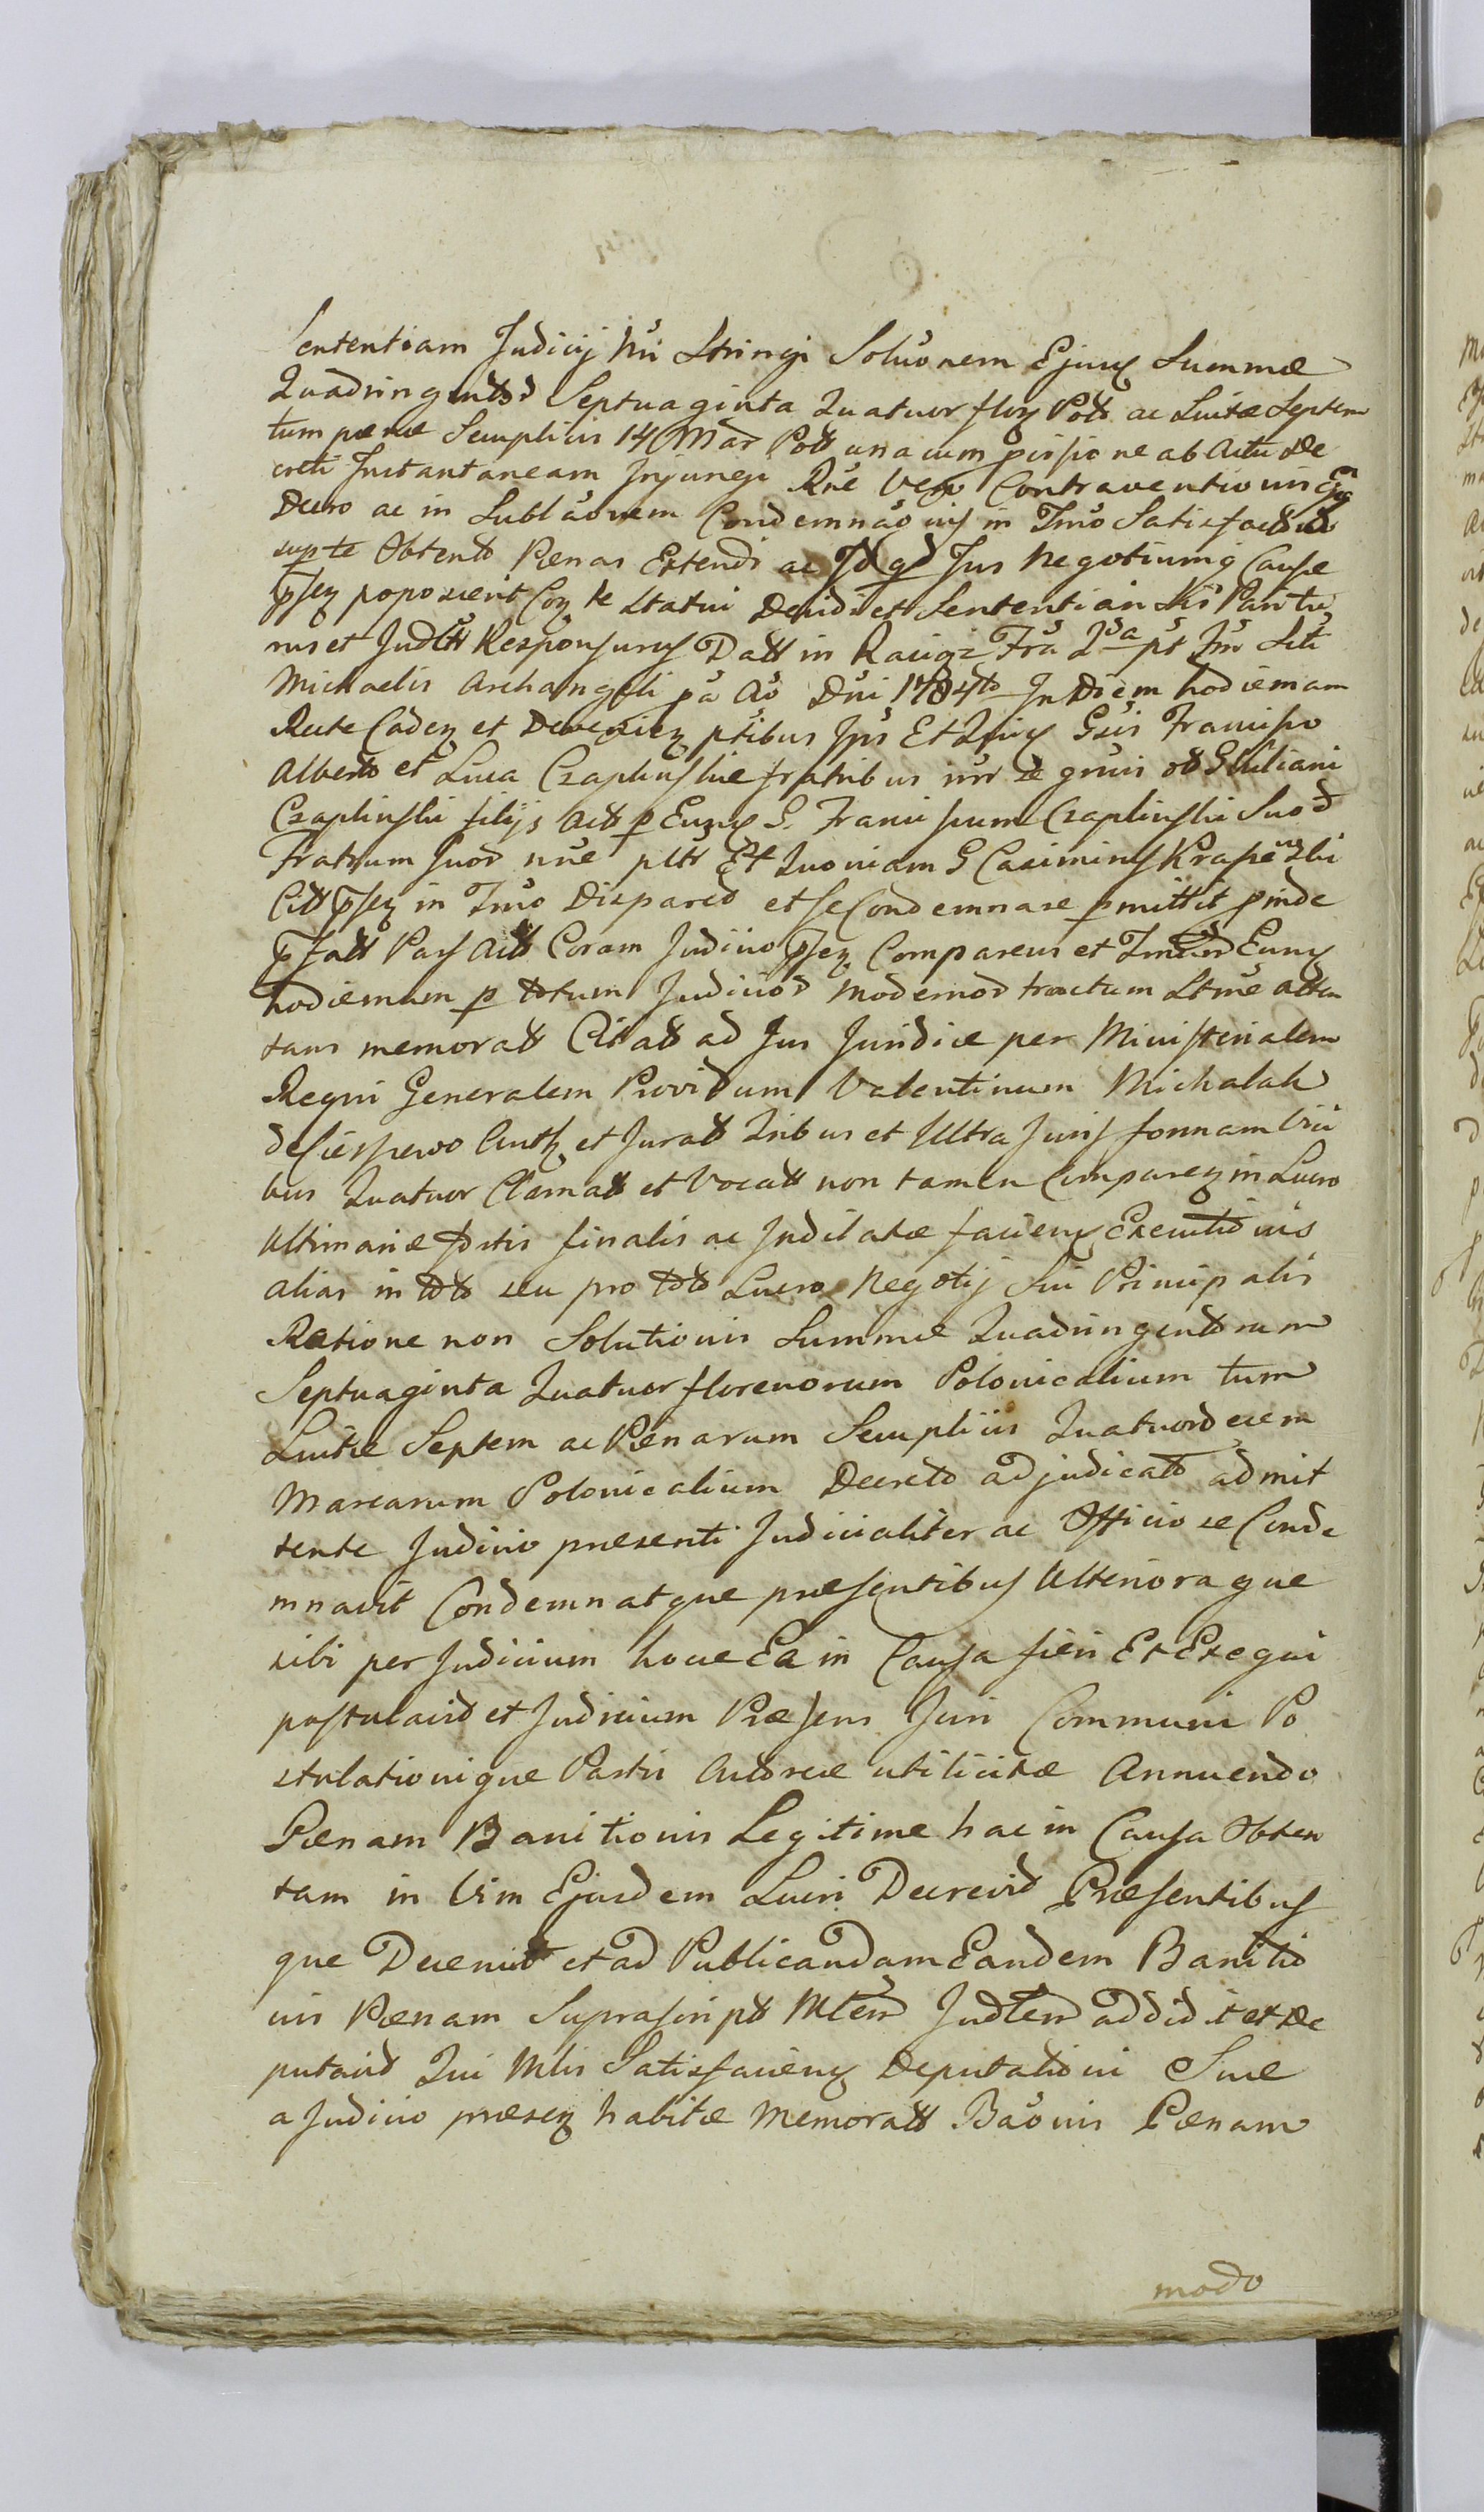 Sententiam Judicij Nri Stringi Soluonem Ejusq Summæ
Quadringentor Septuaginta Quatuor floz Poll ac Luitæ Septem
tum pænæ Semplicis 14 Mar Poll una cum ab Actu De
creti Instantaneam Injungi Rne Vero Contraventionis
Decro ac in Sublaonem Condemnaonis in Tmo Satisfact
supte Obtent Pænas Extendi ac Id qd Jus Negotiumq Causæ
pnsez poposcerit Coz te Statui Decidi et Sententiam
rus et Judltt Responsurus Datt in Raciąż Fra 2da pt Fm Sti
Michaelis Archangeli pa Ao Dni 1784to In Diem hodiernam
Recte Cadez et Deveniez ptibus Ips Et Gsis Francisco
Alberto et Luca Czaplinskie fratribus inr se gnuis ol G Juliani
Czaplinski filijs Actt p Eunq G. Franciscum Czaplinski Suo
Fratrum Suor nne pltt Et Quoniam G Casimirus Krasenski
Citt pnsez in Tmo Disparet et se Condemnare pmittit pinde
pfatt Pars Actt Coram Judicio pnsez Comparens et Tmum Eunq
hodiernum p totum Judicior modernor tractum Ltme atten
tans memoratt Citatt ad Jus Juridice per Ministerialem
Regni Generalem Providum Valentinum Michalak
de Cieszewo Auth et Juratt Tribus et Ultra Juris formam Vici
bus Quatuor Clamatt et Vocatt non tamen Comparez in Lucro
Ultimariæ Sortis finalis ac Judicatæ facienq Executionis
alias in toto seu pro toto Lucro Negotij Sui Principalis
Ratione non Solutionis Summæ Quadringentorum
Septuaginta Quatuor florenorum Polonicalium tum
Luitæ Septem ac Pænarum Semplicis Quatuordecem
Marcarum Polonicalium Decreto adjudicato admit
tente Judicio præsenti Judicialiter ac Officiose Conde
mnavit Condemnatque præsentibus Ulterioraque
sibi per Judicium hocce Ea in Causa fieri Et Exequi
postulavit et Judicium Præsens Juri Communi Po
stulationique Partis Actoreæ utilicitæ Annuendo
Pænam Banitionis Legitime hac in Causa Obten
tam in Vim Ejusdem Lucri Decrevit Præsentibus
que Decernit et ad Publicandam Eandem Banitio
nis Pænam Suprascriptt Mlem Judlem addidit et De
putavit Qui Mlis Satisfacienq Deputationi Suæ
a Judicio præsez habitæ Memoratt Baonis Pænam
modo